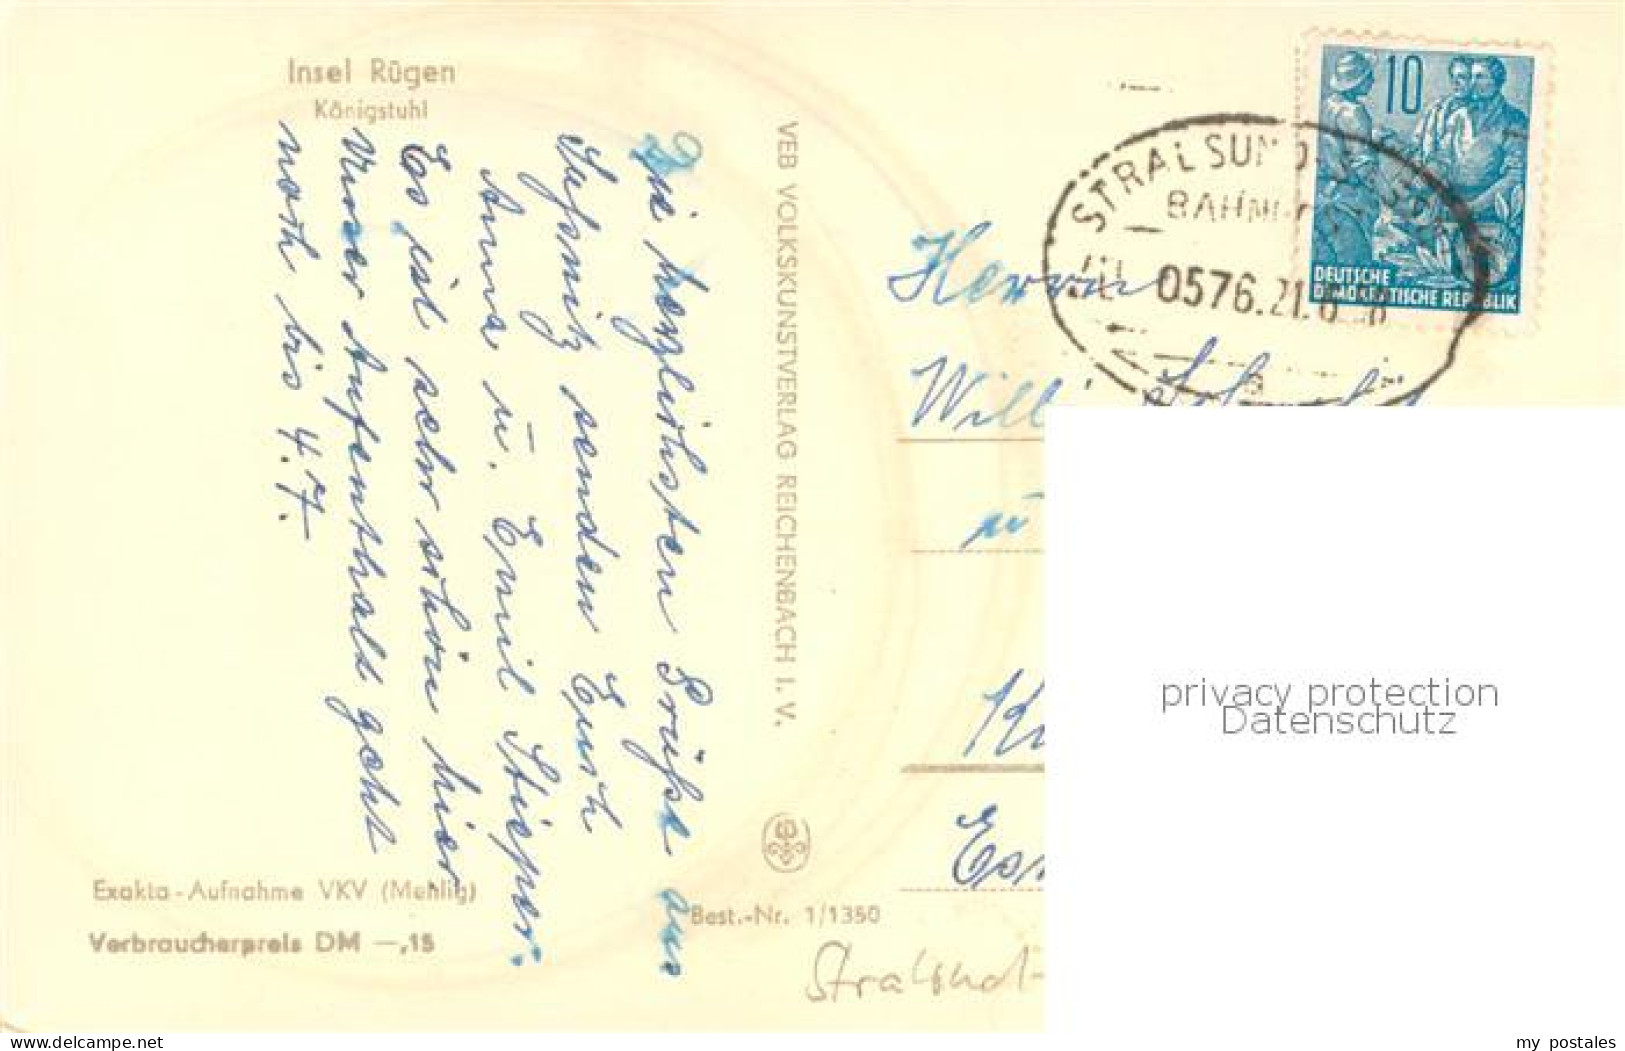 Insel Rügen
Königstuhl
Die herzlichsten Grüße aus
Saßnitz senden Euch
Anna u. Emil Stieper.
Es ist sehr schön hier
Unser Aufenthald geht
noch bis 4.7.
Exakta-Aufnahme VKV (Mehlig)
Verbraucherpreis DM —,15
VEB VOLKSKUNSTVERLAG REICHENBACH I. V.
Best.-Nr. 1/1350
Stralsund-
10
DEUTSCHE
DEMOKRATISCHE REPUBLIK
STRALSUND
BAHNPOST
0576.21.6
Herrn
Willi
u
privacy protection
Datenschutz
my postales